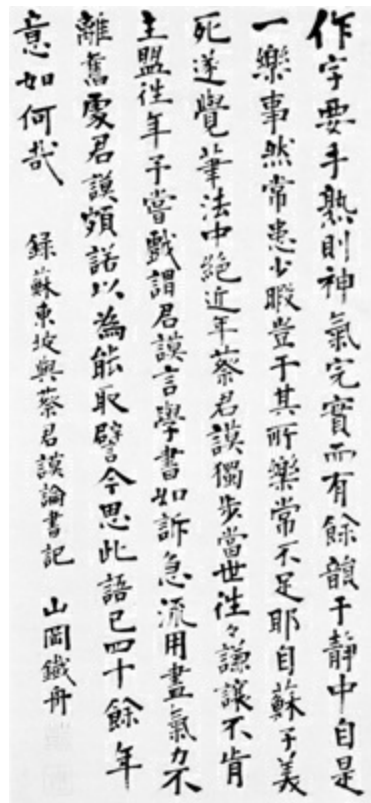 作字要手熟則神氣完實而有餘韻于静中自是
一樂事然常患少暇豈于其所樂常不足耶自蘇子美
死遂覺筆法中絶近年蔡君謨獨步當世往々謙讓不肯
主盟往年予嘗戯謂君謨言學書如訴急流用盡氣力不
離舊處君謨頗諾以為能取譬今思此語已四十餘年
意如何哉 録蘇東坡與蔡君謨論書記 山岡鐵舟